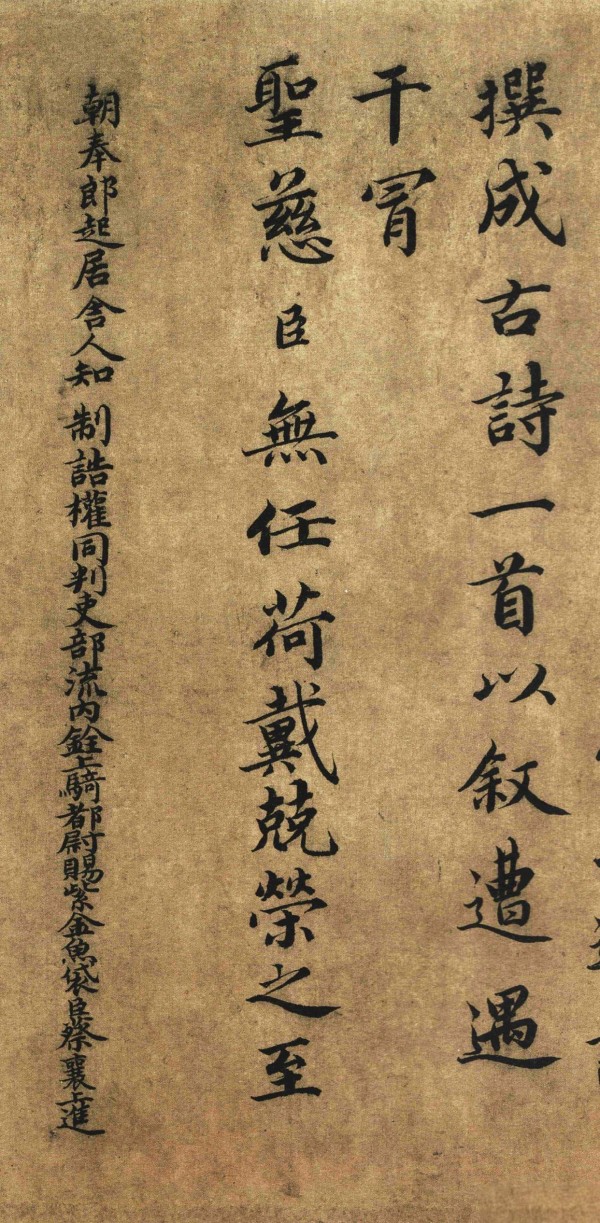 撰成古詩一首以敘遭遇
干冒
聖慈臣無任荷戴兢榮之至
朝奉郎起居舍人知制誥權同判吏部流內銓上騎都尉賜紫金魚袋臣蔡襄上進